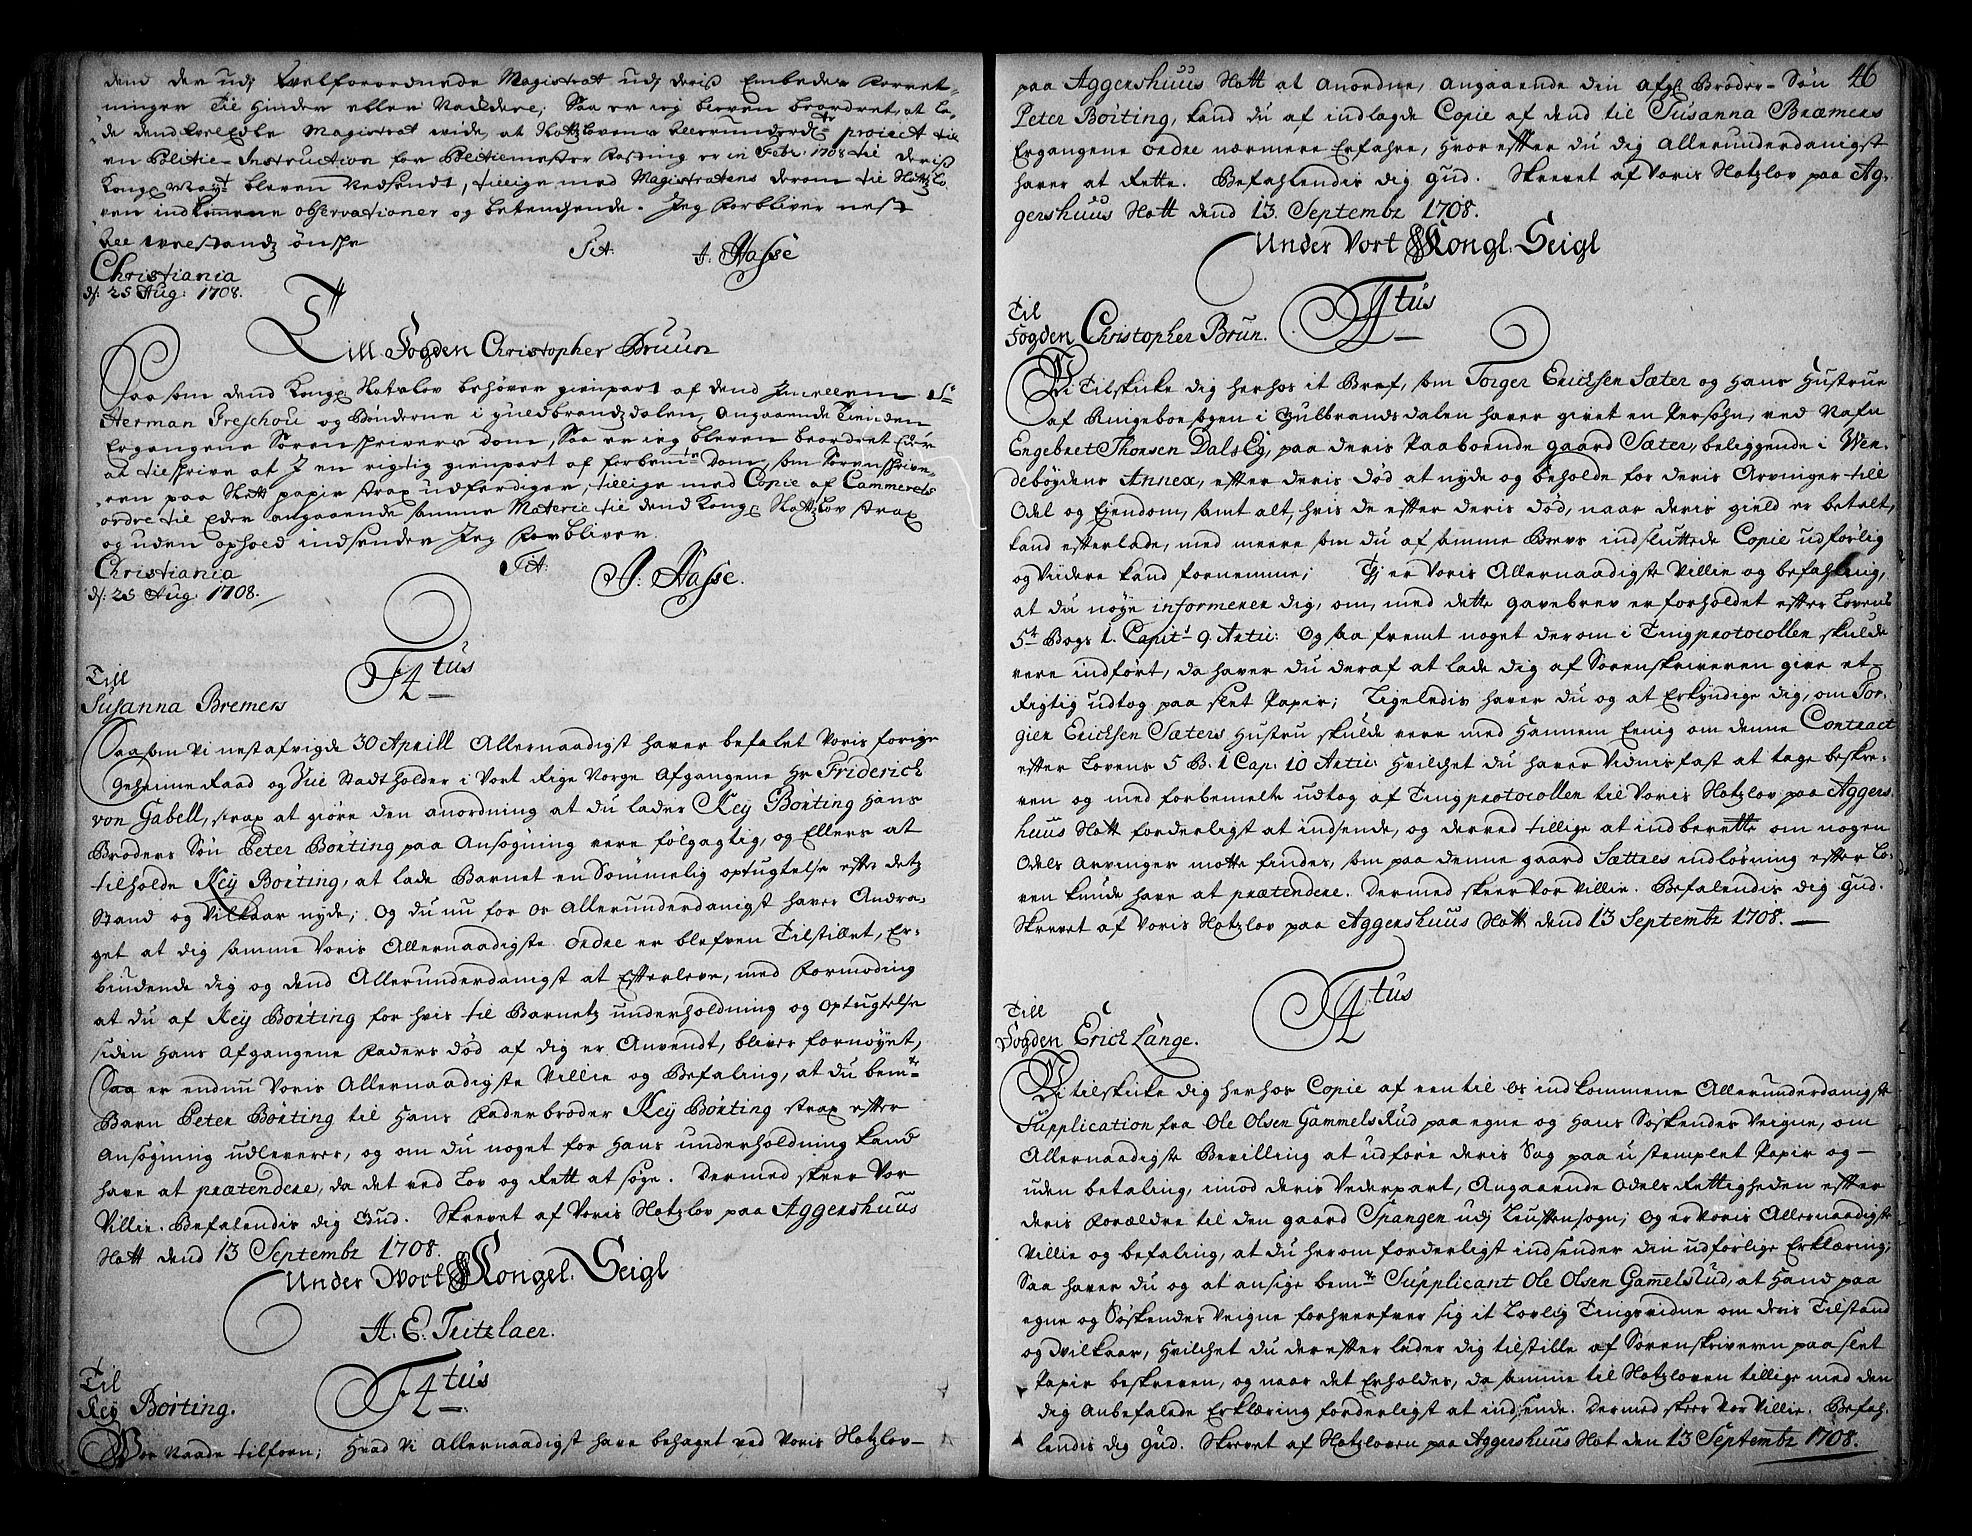 dend der udj Velforordnede Magistrat udj deris Embeder Forret-
ninger til hinder eller Nachdeel; Saa er ieg bleven beordret, at la-
de dend Velædle Magistrat wide, at Slotzlovens allerunderd:te project til
en Politie-Instruction for Politiemester Rasning er in Febr: 1708 til deris
Kongl May:t bleven Nedsendt, tillige med Magistratens derom til Slotzlo-
ven indkomene observationer og betenchende. Jeg forbliver nest
all velstandz önske
Tit: J: Hasse
Christiania
d: 25 Aug: 1708.
Till Fogden Christopher Bruun
Saasom dend Kongl Slotzlov behøver gienpart af dend imellem Sr
Herman Treschou og Bønderne i Guldbrandzdalen, angaaende Tienden
Ergangene Sorenskrivers dom, Saa er ieg bleven beordret Eder
at tilskrive at I en rigtig gienpart af forbem:te Dom, som Sorenskrive-
ren paa slett papir strax udferdiger, tillige med Copie af Cammerets
ordre til Eder angaaende samme Materie til dend Kongl Slotzlov strax
og uden ophold indsender Jeg forbliver.
Tit: J: Hasse.
Christiania
d: 25 Aug: 1708.
F4tus
Till
Susanna Bremers
Saasom Vi nestafvigde 30 Aprill Allernaadigst haver befalet Voris forige
Geheime Raad og Vice Stadtholder i Vort Rige Norge Afgangene Hr Friderich
von Gabell, strax at giöre den anordning at du lader Key Börting hans
Broders Sön Peter Börting paa Ansögning vere fölgagtig, og Ellers at
tilholde Key Börting, at lade Barnet en Sömmelig optugtelse efter detz
Stand og Vilkaar nyde; Og du nu for os Allerunderdanigst haver Andra-
get at dig samme Voris Allernaadigste ordre er blefven Tilstillet, Er-
biudende dig og dend Allerunderdanigst at Efterleve, med formoding
at du af Key Börting for hvis til Barnetz underholdning og Optugtelse
siden hans Afgangene Faders död af dig er Anvendt, bliver fornöyet,
Saa er endnu Voris Allernaadigste Villie og Befaling, at du bem:te
Barn Peter Börting til Hans Faderbroder Key Börting strax efter
Ansögning udleverer, og om du noget for hans underholdning kand
have at prætendere, da det ved Lov og Rett at söge. Dermed skeer Vor
Villie. Befalendis dig Gud. Skrevet af Voris Slotzlov paa Aggershuus
Slott dend 13 Septembr 1708.
Under Vort Kongel. Seigl
H. E. Tritzlaer.
F4tus
Til
Key Börting.
Vor Naade tilforn; Hvad Vi Allernaadigst have behaget ved Voris Slotzlov-
46
paa Aggershuus Slott at Anordne, Angaaende din afg: Broder-Sön
Peter Börting, kand du af indlagde Copie af dend til Susanna Bræmers
Ergangene Ordre nærmere Erfahre, hvorefter du dig Allerunderdanigst
haver at rette. Befahlendis dig Gud. Skrevet af Voris Slotzlov paa Ag-
gershuus Slott dend 13. Septembr 1708.
Under Vort Kongl. Seigl
F4tus
Til
Fogden Christopher Brun.
Vi Tilskicke dig herhos it Bref, som Torger Ericksen Sæter og Hans Hustrue
af Ringeboe sogn i Gulbrandsdalen haver givet en Persohn, ved Nafn
Engebret Thorsen Dals Eg, paa deris Paaboende gaard Sæter, beleggende i Wen-
debøydens Annex, efter deris död at nyde og beholde for deris Arvinger till
Odel og Eiendom, samt alt, hvis de efter deris död, naar deris gield er betalt,
kand efterlade, med meere som du af samme Brevs indsluttede Copie udförlig
og Viidere kand fornemme; Thj er Voris Allernaadigste Villie og befahling,
at du nöye informerer dig, om, med dette gavebrev er forholdet efter Lovens
5t Bogs 1. Capit:l 9. Artic: Og saa fremt noget derom i Tingprotocollen skulde
vere indfört, da haver du deraf at lade dig af Sorenskriveren give et-
Rigtig udtog paa slet Papir; Ligeledis haver du og at Erkyndige dig, om Tor-
gier Ericksen Sæters Hustru skulde vere med Hannem Eenig om denne Contract
efter Lovens 5 B: 1 Cap: 10 Artic: hvilchet du haver Vidnisfast at tage beskre-
ven og med forbemelte udtog af Tingprotocollen til Voris Slotzlov paa Aggers
huus Slott forderligst at indsende, og derved tillige at indberette om nogen
Odels Arvinger motte findes, som paa denne gaard Sætters indlösning efter Lo-
ven kunde have at prætendere. Dermed skeer Vor Villie. Befalendis dig Gud.
Skrevet af Voris Slotzlov paa Aggershuus Slott dend 13 Septembr 1708.
F4tus
Till
Fogden Erich Lange.
Vi tilskicke dig herhos Copie af een til os indkommene Allerunderdanigste
Supplication fra Ole Olsen Gammels Rud paa egne og Hans Söskendes Veigne, om
Allernaadigste Bevilling at udföre deris Sag paa u stemplet Papir og-
uden betaling, imod deris Vederpart, Angaaende Odels Rettigheden efter
deris Forældre til den gaard Spangen udj Leuttensogn; Og er Voris Allernaadigste
Villie og befaling, at du herom forderligst indsender din udförlige Erklæring;
Saa haver du og at ansige bem:te Supplicant Ole Olsen Gamelsrud, at Hand paa
egne og Söskendes Veigne forhverfver sig it Lovlig Tingsvidne om deris Tilstand
og Vilkaar, hvilchet du derefter lader dig tilstille af Sorenskriveren paa slet
Papir beskreven, og naar det Erholdes, da samme til Slotzloven tillige med den
dig Anbefalede Erklæring forderligst at indsende. Dermed skeer Vor Villie. Befah-
lendis dig Gud. Skrevet af Slotzloven paa Aggershuus Slot den 13 Septembr 1708.